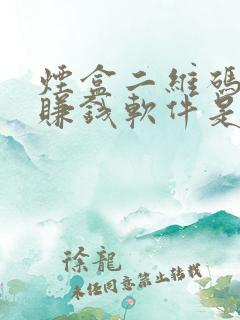 煙盒二維碼
賺錢軟件是
徐龍
未經同意禁止轉載